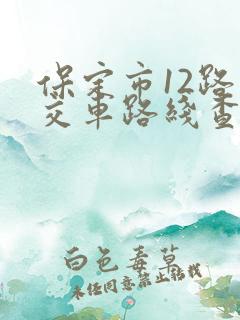 保定市12路
交车路线查
白色毒草
未经同意禁止转载